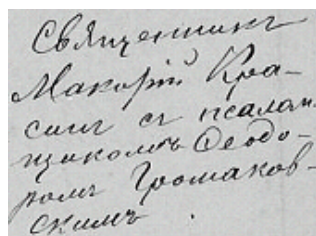 Священникъ
Макорій Кра-
синъ съ псалом-
щикомъ Ѳеодо-
ромъ Громаков-
скимъ